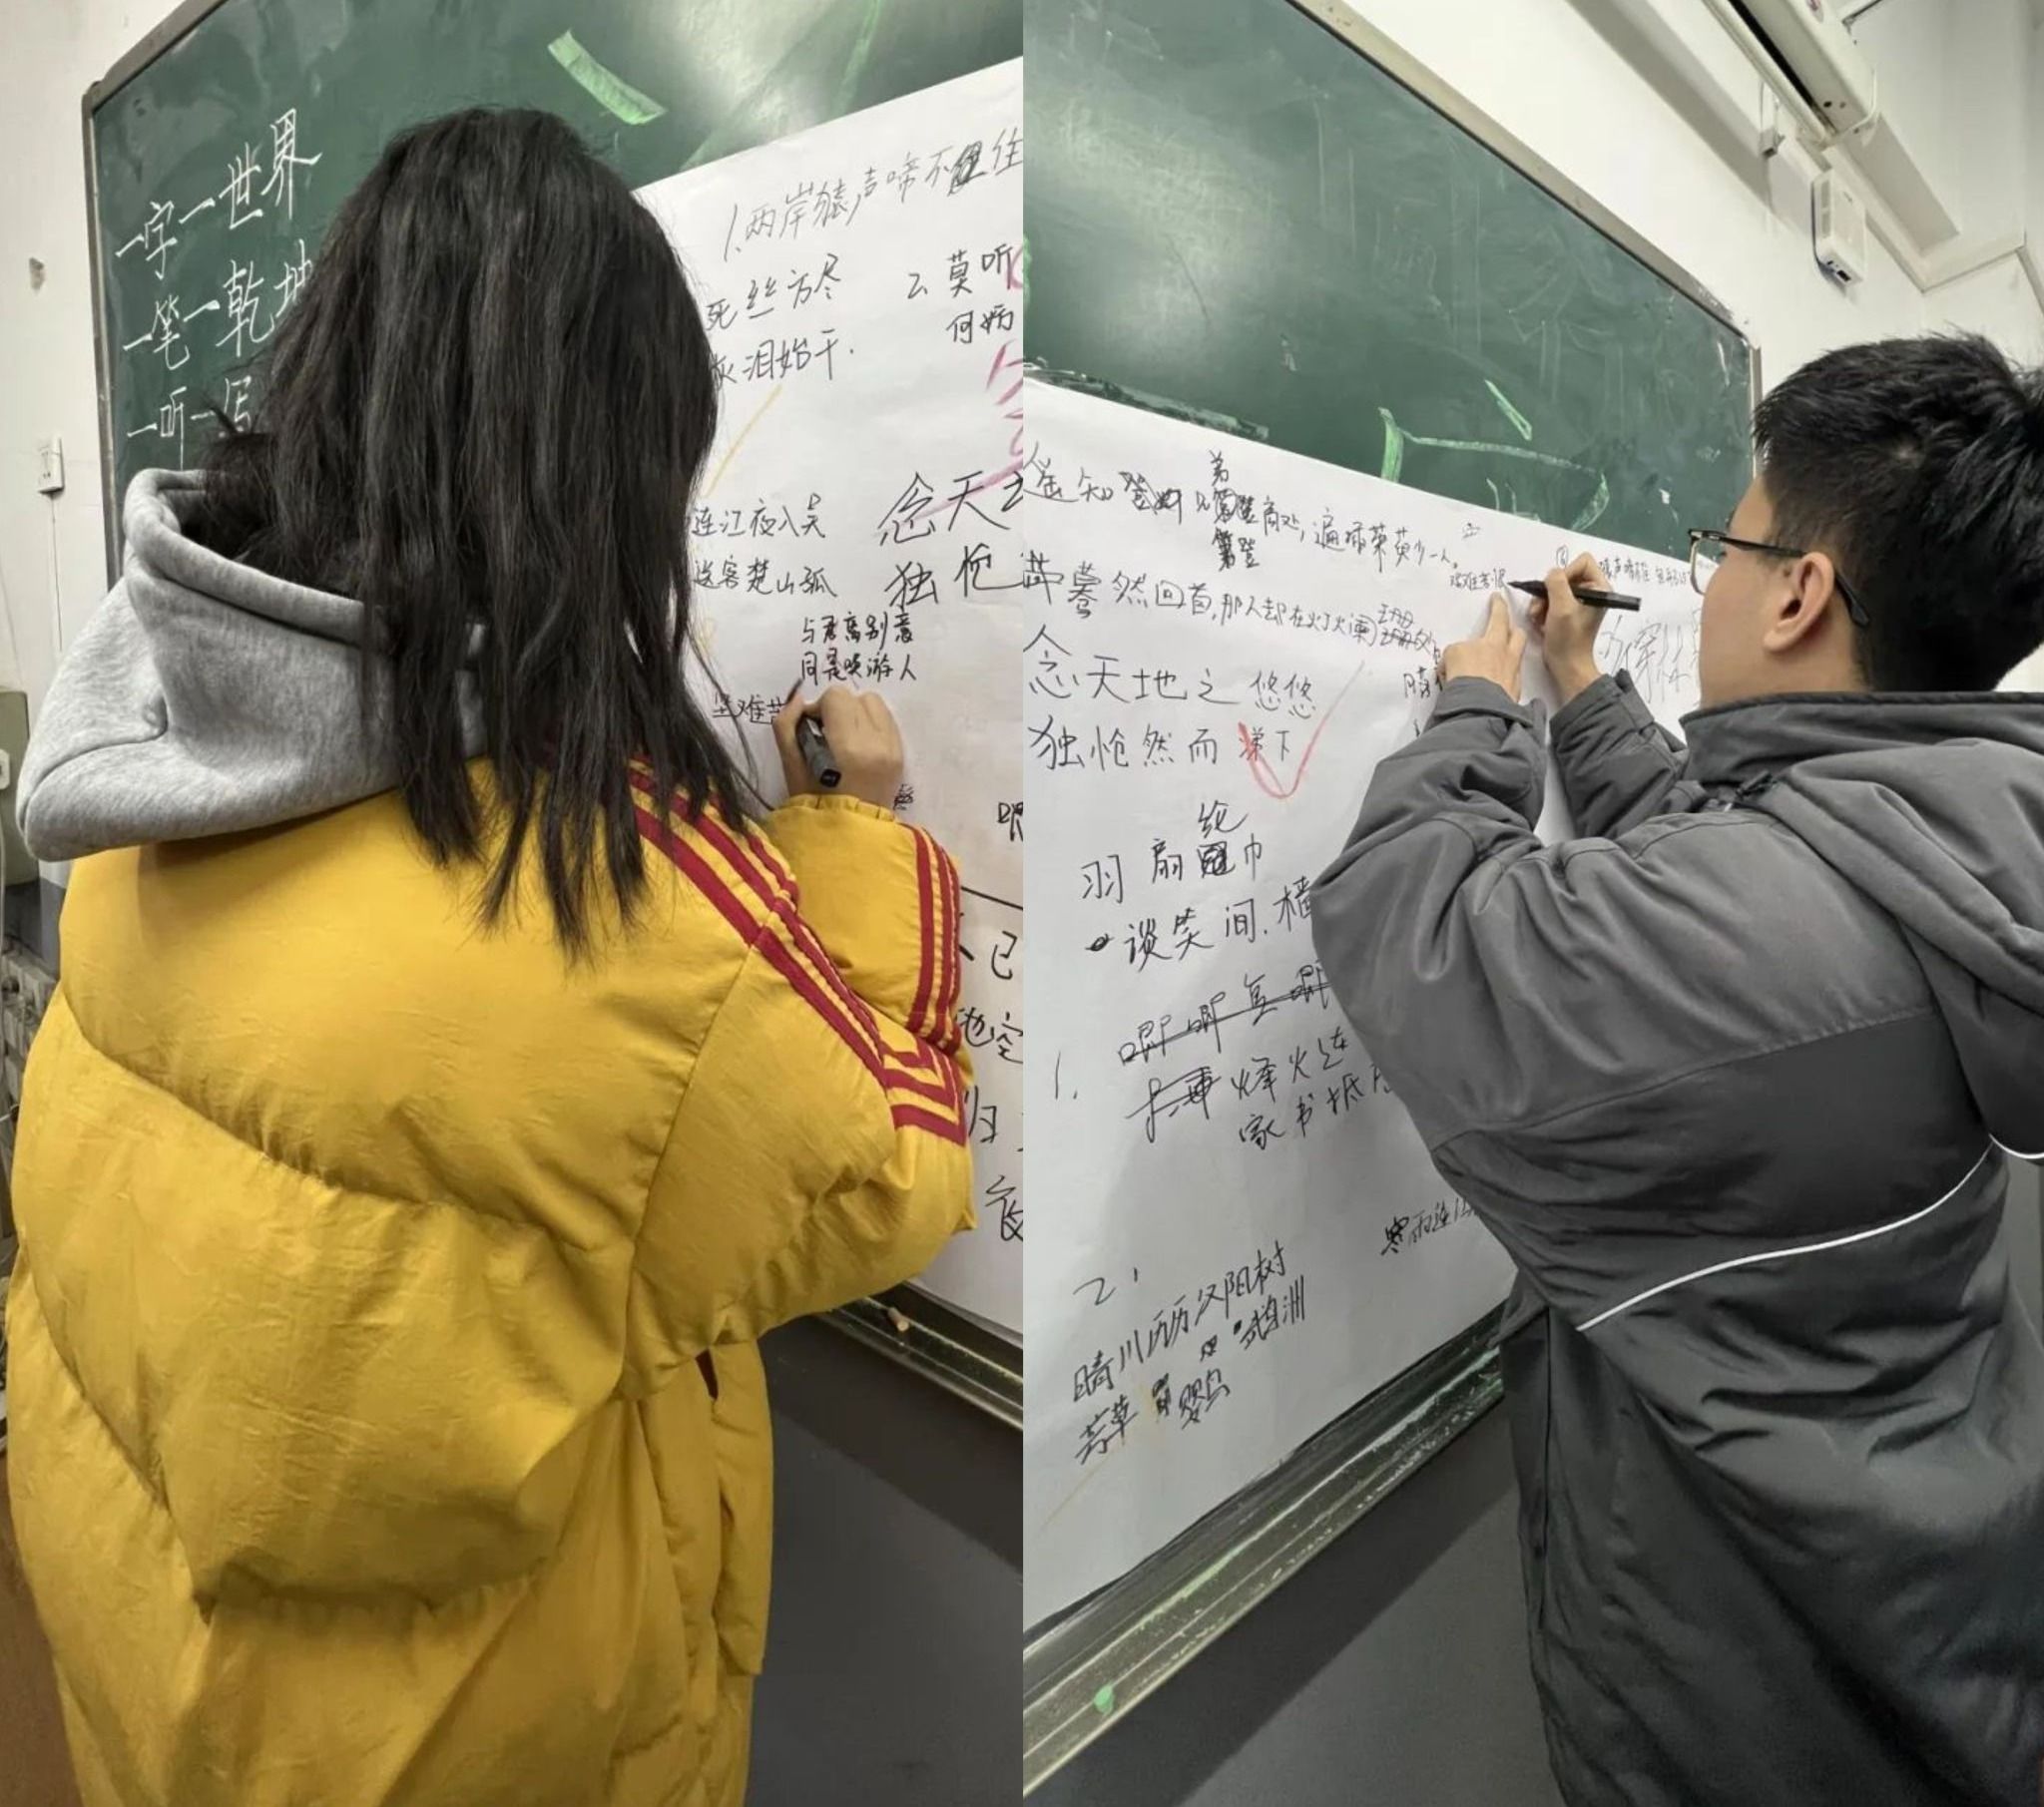 一字一世界
一笔一乾坤
一听一写
1.两岸猿声啼不住
死丝方尽
灰泪始干.
2.莫听
何妨
连江夜入吴
送客楚山孤
念天
独怆
与君离别意
同是宦游人
艰难苦
已
池空
归
遥知兄弟登高处,遍插茱萸少一人。
蓦然回首,那人却在灯火阑珊处
念天地之悠悠
独怆然而涕下
羽扇纶巾
谈笑间.樯
唧唧复唧
1.
烽火连
家书抵
寒雨连江
2.
晴川历历汉阳树
芳草
鹦
鹉洲
艰难苦恨